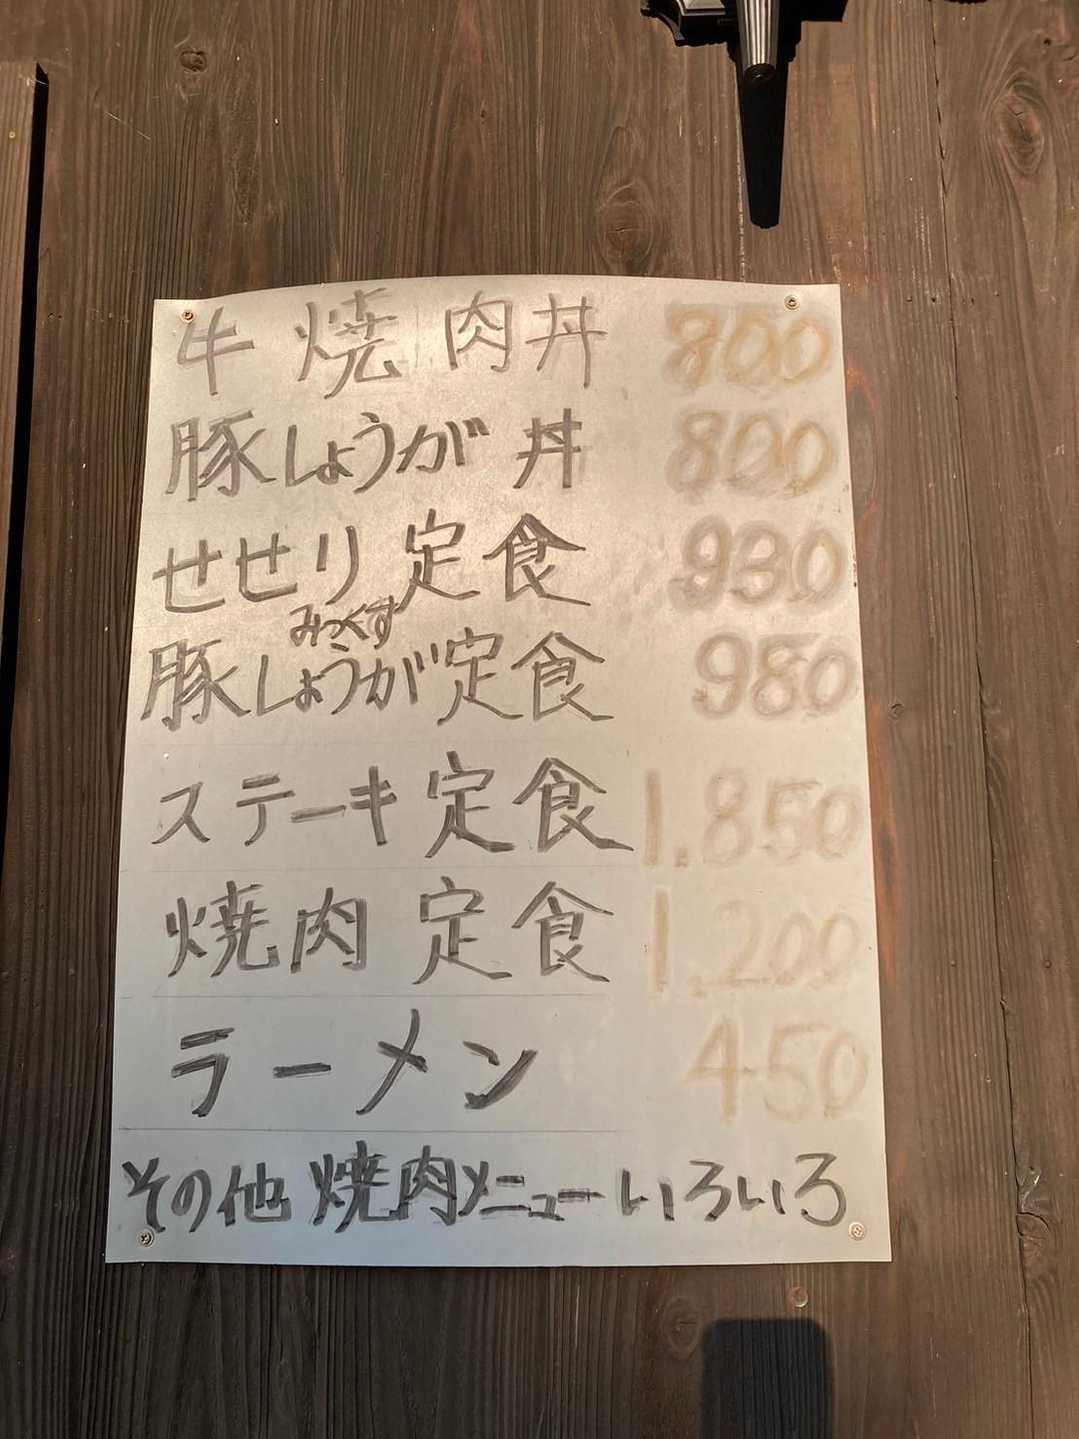 牛焼肉丼 800
豚しょうが丼 800
せせり定食 930
みっくす
豚しょうが定食 980
ステーキ定食 1.850
焼肉定食 1.200
ラーメン 450
その他焼肉メニューいろいろ